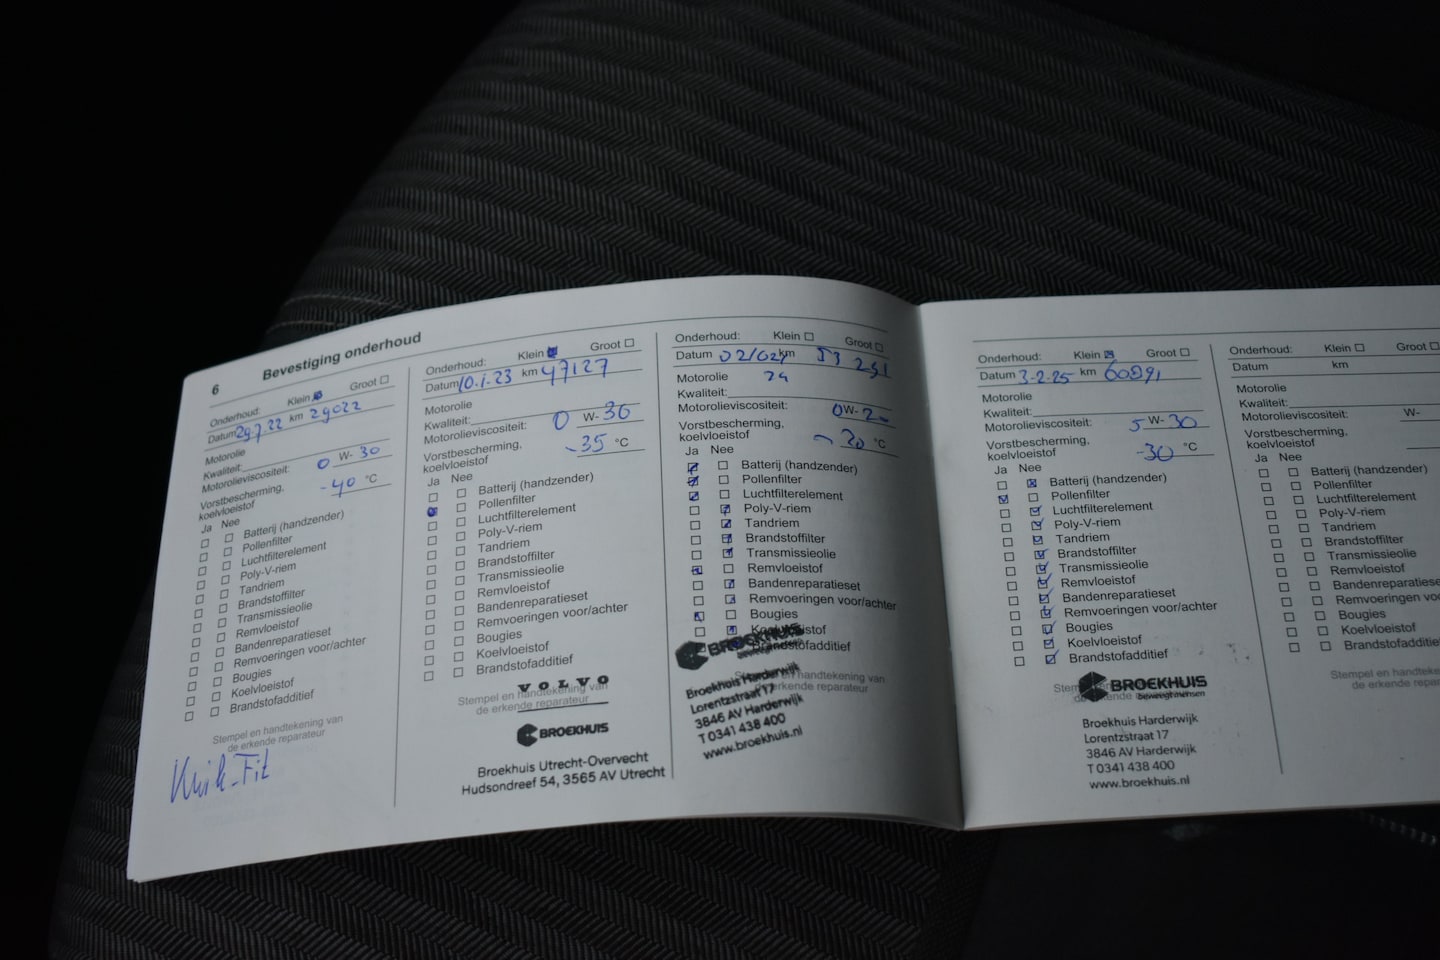 6 Bevestiging onderhoud
Onderhoud: Klein Groot
Datum 29.7.22 km 29022
Motorolie
Kwaliteit:
Motorolieviscositeit: 0 W- 30
Vorstbescherming,
koelvloeistof -40 °C
Ja Nee
Batterij (handzender)
Pollenfilter
Luchtfilterelement
Poly-V-riem
Tandriem
Brandstoffilter
Transmissieolie
Remvloeistof
Bandenreparatieset
Remvoeringen voor/achter
Bougies
Koelvloeistof
Brandstofadditief
Stempel en handtekening van
de erkende reparateur
Kwik-Fit
Onderhoud: Klein Groot
Datum 10.1.23 km 47127
Motorolie
Kwaliteit:
Motorolieviscositeit: 0 W- 30
Vorstbescherming,
koelvloeistof -35 °C
Ja Nee
Batterij (handzender)
Pollenfilter
Luchtfilterelement
Poly-V-riem
Tandriem
Brandstoffilter
Transmissieolie
Remvloeistof
Bandenreparatieset
Remvoeringen voor/achter
Bougies
Koelvloeistof
Brandstofadditief
Stempel en handtekening van
de erkende reparateur
VOLVO
BROEKHUIS
Broekhuis Utrecht-Overvecht
Hudsondreef 54, 3565 AV Utrecht
Onderhoud: Klein Groot
Datum 02/02/ km 53 251
Motorolie 24
Kwaliteit:
Motorolieviscositeit: 0 W- 20
Vorstbescherming,
koelvloeistof -20 °C
Ja Nee
Batterij (handzender)
Pollenfilter
Luchtfilterelement
Poly-V-riem
Tandriem
Brandstoffilter
Transmissieolie
Remvloeistof
Bandenreparatieset
Remvoeringen voor/achter
Bougies
Koelvloeistof
Brandstofadditief
handtekening van
erkende reparateur
BROEKHUIS
Broekhuis Harderwijk
Lorentzstraat 17
3846 AV Harderwijk
T 0341 438 400
www.broekhuis.nl
Onderhoud: Klein Groot
Datum 3-2-25 km 60891
Motorolie
Kwaliteit:
Motorolieviscositeit: 5 W- 30
Vorstbescherming,
koelvloeistof -30 °C
Ja Nee
Batterij (handzender)
Pollenfilter
Luchtfilterelement
Poly-V-riem
Tandriem
Brandstoffilter
Transmissieolie
Remvloeistof
Bandenreparatieset
Remvoeringen voor/achter
Bougies
Koelvloeistof
Brandstofadditief
BROEKHUIS
beweegt mensen
Broekhuis Harderwijk
Lorentzstraat 17
3846 AV Harderwijk
T 0341 438 400
www.broekhuis.nl
Onderhoud: Klein Groot
Datum km
Motorolie
Kwaliteit:
Motorolieviscositeit: W-
Vorstbescherming,
koelvloeistof
Ja Nee
Batterij (handzender)
Pollenfilter
Luchtfilterelement
Poly-V-riem
Tandriem
Brandstoffilter
Transmissieolie
Remvloeistof
Bandenreparatiese
Remvoeringen voor
Bougies
Koelvloeistof
Brandstofadditief
Stempel en handte
de erkende re